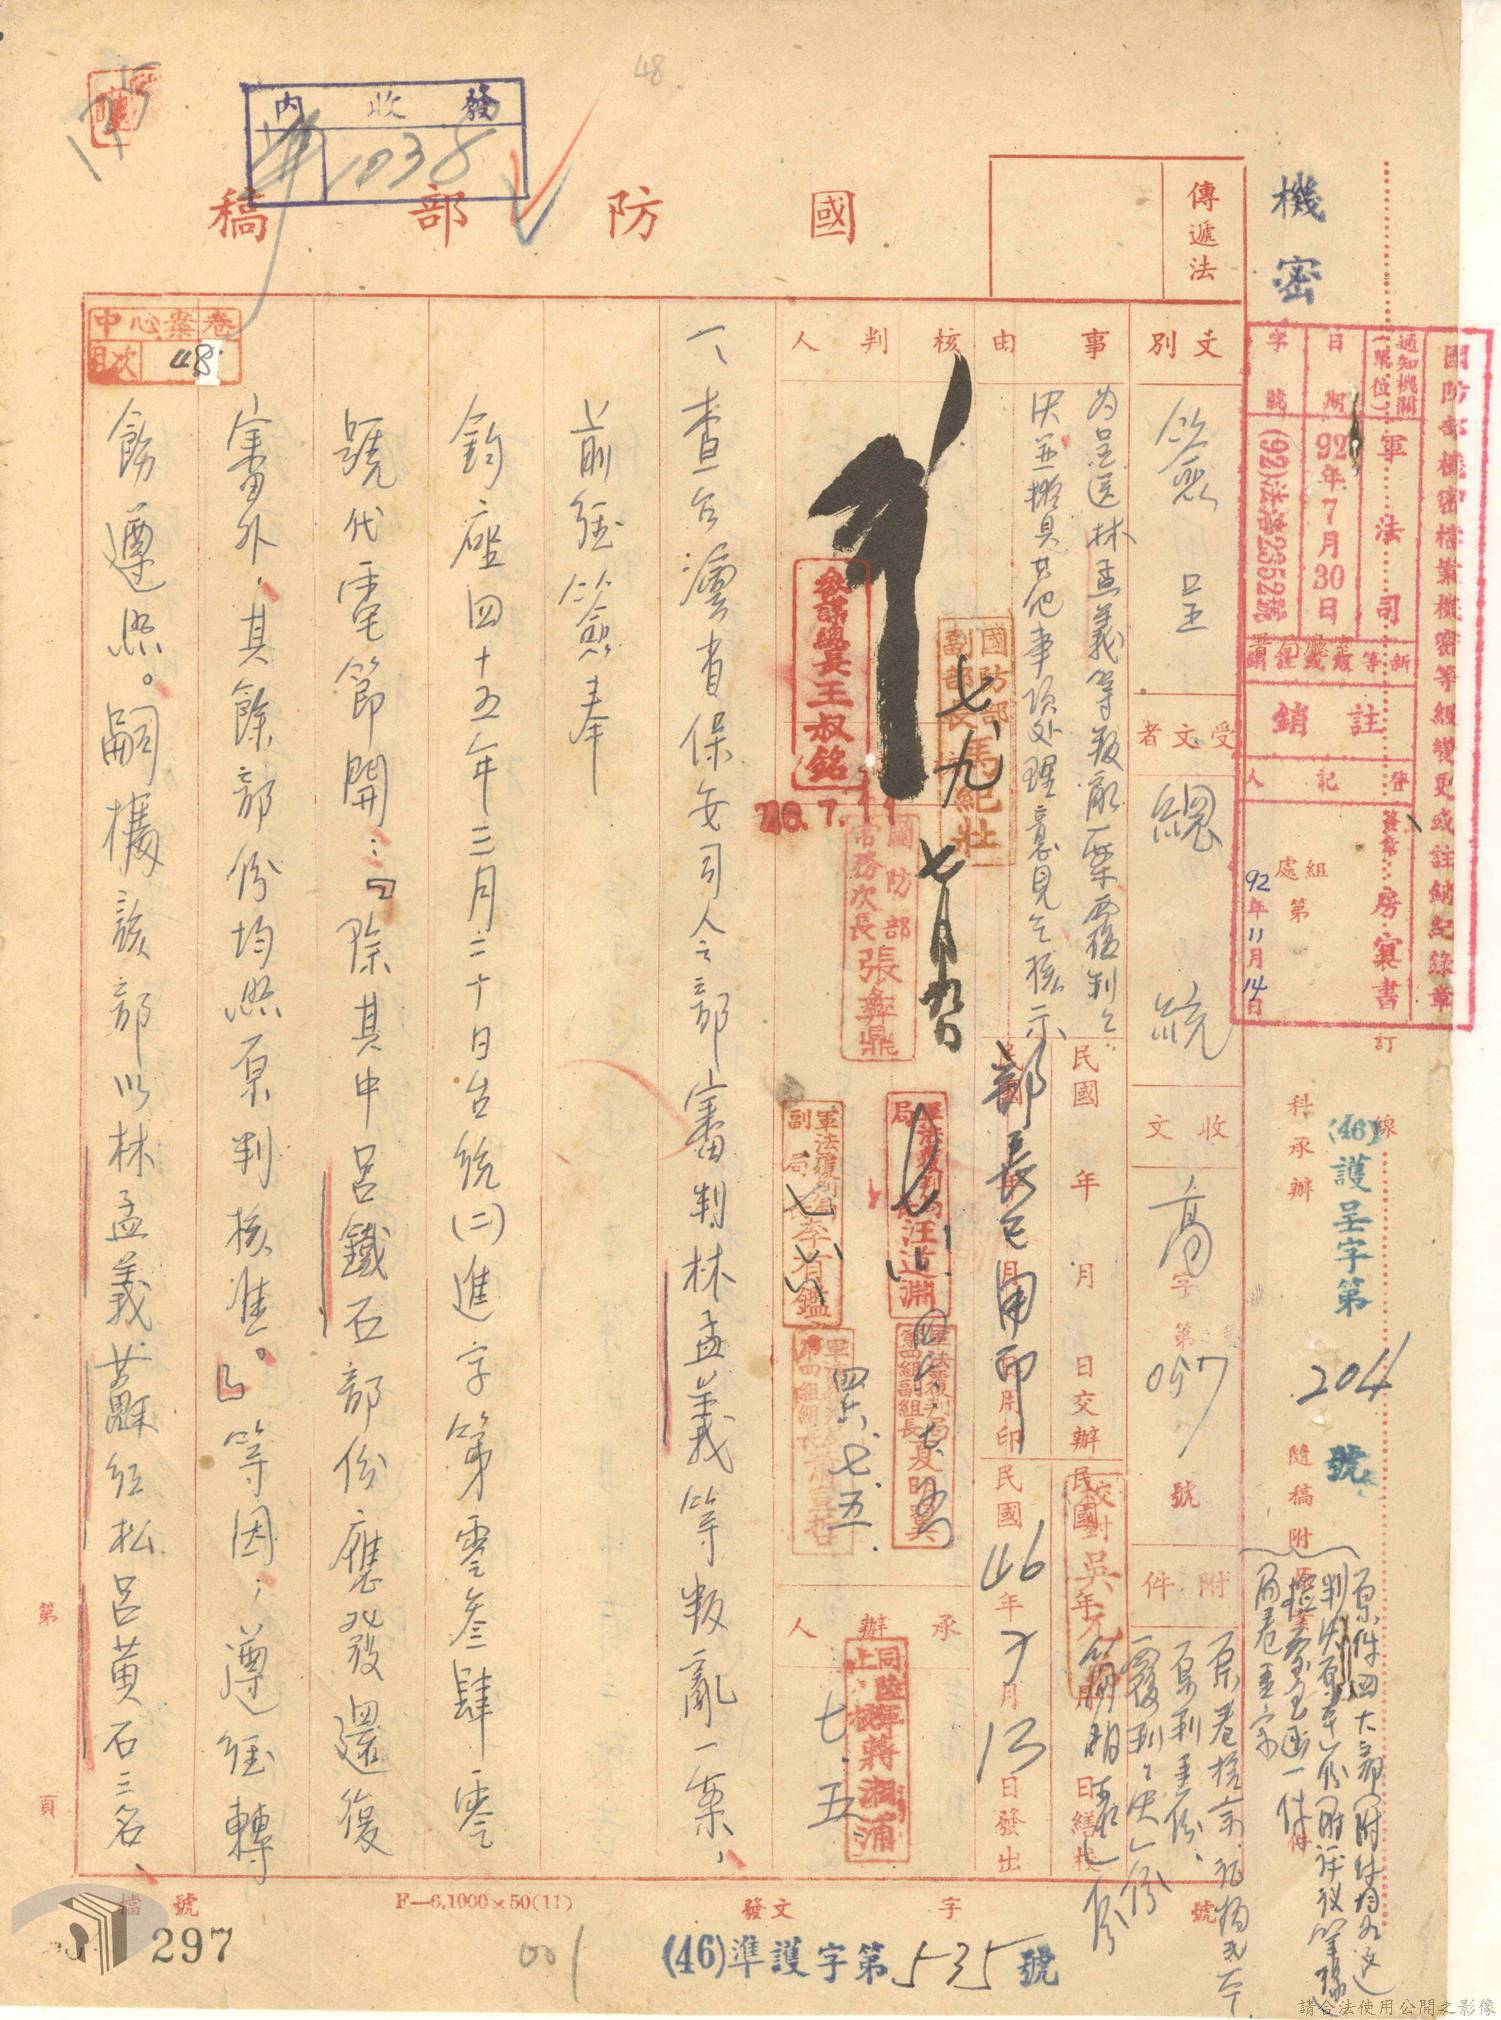 48
發收內
1038
國防部稿
傳遞法
機密
國防部機密檔案機密等級變更或註銷紀錄章
通知機關(單位)
軍法司
日期
92年7月30日
字號
(92)法浩2352號
註銷
登記人
92年11月14日
文別
簽呈
受文者
總統
收文
字第057號
附件
原卷拾宗
原判壹份、
覆判判決一份
事由
為呈送林孟義等叛亂一案覆判判決並擬具其他事項處理意見乞核示
核判人
參謀總長王叔銘
國防部副部長馬紀壯
國防部常務次長張彝鼎
軍法覆判局局長汪道淵
軍法覆判局副局長李有鑑
軍法覆判局第四組副組長夏明翼
46.7.11
民國年月日交辦
民國46年7月13日發出
校對吳
承辦人
同陸軍上校蔣湘浦
七、五
科承辦
(46)護呈字第204號
隨稿附
訂線
中心案卷
目次 48
一、查台灣省保安司令部審判林孟義等叛亂一案,
前經簽奉
鈞座四十五年三月二十日台統(二)進字第零叁肆零
號代電節開:「除其中呂鐵石部份應發還復
審外,其餘部份均照原判核准。」等因;遵經轉
飭遵照。嗣據該部以林孟義蘇紅松呂黃石三名、
第頁
檔號
F—6.1000×50(11)
發文字號
297
001
(46)準護字第535號
請合法使用公開之影像